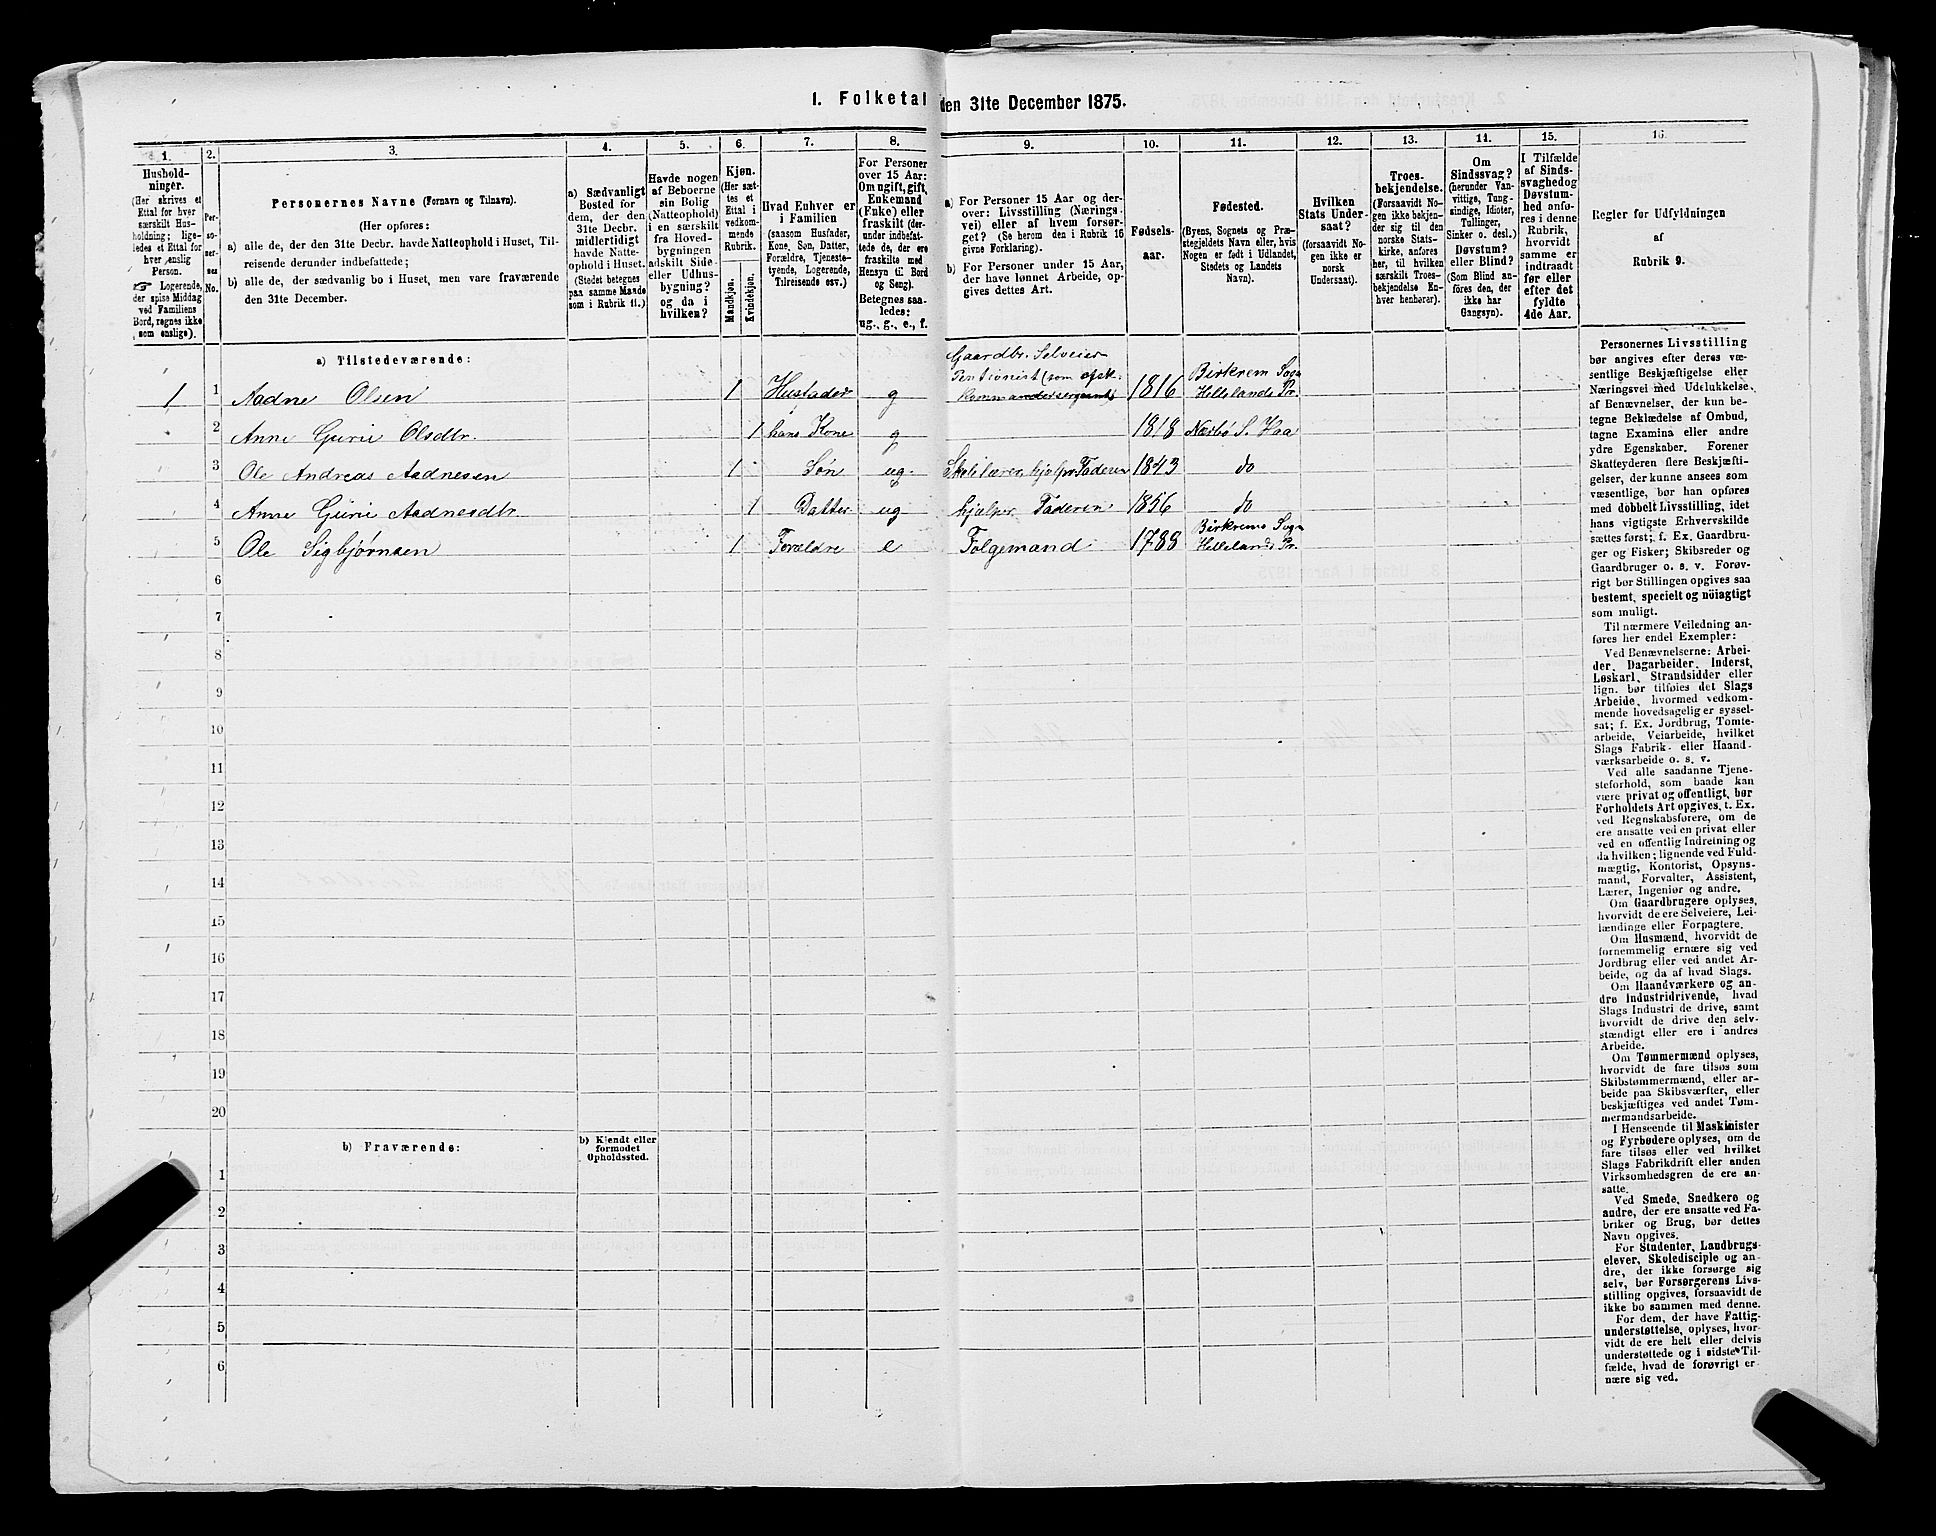 1. Folketal den 31te December 1875.
1.
2.
3.
4.
5.
6.
7.
8.
9.
10.
11.
12.
13.
14.
15.
16.
Husholdninger.
(Her skrives et
Ettal for hver
særskilt Husholdning;
ligeledes et Ettal for
hver enslig
Person.
☞ Logerende,
der spise Middag
ved Familiens
Bord, regnes ikke
som enslige).
Personernes No.
Personernes Navne (Fornavn og Tilnavn).
(Her opføres:
a) alle de, der den 31te Decbr. havde Natteophold i Huset, Tilreisende derunder indbefattede;
b) alle de, der sædvanlig bo i Huset, men vare fraværende
den 31te December.
a) Sædvanligt
Bosted for
dem, der den
31te Decbr.
midlertidigt
havde Natteophold i Huset.
(Stedet betegnes
paa samme Maade
som i Rubrik 11.)
Havde nogen
af Beboerne
sin Bolig
(Natteophold)
i en særskilt
fra Hovedbygningen
adskilt Side-
eller Udhusbygning?
og da i
hvilken?
Kjøn.
(Her sættes et
Ettal i
vedkommende
Rubrik.
Mandkjøn.
Kvindekjøn.
Hvad Enhver er
i Familien
(saasom Husfader,
Kone, Søn, Datter,
Forældre, Tjenestetyende, Logerende,
Tilreisende osv.)
For Personer
over 15 Aar:
Om ugift, gift,
Enkemand
(Enke) eller
fraskilt (derunder indbefattede de, der ere
fraskilte med
Hensyn til Bord
og Seng).
Betegnes saaledes:
ug., g., e., f.
a) For Personer 15 Aar og derover: Livsstilling (Næringsvei) eller af hvem forsørget? (Se herom den i Rubrik 16
givne Forklaring).
b) For Personer under 15 Aar,
der have lønnet Arbeide, opgives dettes Art.
Fødselsaar.
Fødested.
(Byens, Sognets og Præstegjeldets Navn eller, hvis
Nogen er født i Udlandet,
Stedets og Landets
Navn).
Hvilken
Stats Undersaat?
(forsaavidt Nogen ikke er
norsk
Undersaat).
Troesbekjendelse.
(Forsaavidt Nogen ikke bekjender sig til den
norske Statskirke, anføres
her, til hvilken
særskilt Troesbekjendelse Enhver henhører).
Om
Sindssvag?
(herunder Vanvittige, Tungsindige, Idioter,
Tullinger,
Sinker o. desl.)
Døvstum?
eller Blind?
(Som Blind anføres den, der
ikke har
Gangsyn).
I Tilfælde
af Sindssvaghed og
Døvstumhed anføres i denne
Rubrik,
hvorvidt
samme er
indtraadt
før eller
efter det
fyldte
4de Aar.
Regler for Udfyldningen
af
Rubrik 9.
a) Tilstedeværende:
Gaardbr. Selveier
1 1 Aadne Olsen 1 Husfader g Pentionist (som afsk. Kommandersergeant) 1816 Birkrem Sogn Hellelands Pr.
2 Anne Gurie Olsdtr. 1 hans Kone g 1818 Nærbø S. Haa
3 Ole Andreas Aadnesen 1 Søn ug. Skolelærer, hjelper Faderen 1843 do
4 Anne Gurie Aadnesdtr. 1 Datter ug hjælper Faderen 1856 do
5 Ole Sigbjørnsen 1 Forældre e Folgemand 1788 Birkrems Sogn Hellelands Pr.
6
7
8
9
10
11
12
13
14
15
16
17
18
19
20
b) Fraværende:
b) Kjendt eller
formodet
Opholdssted.
1
2
3
4
5
6
Personernes Livsstilling
bør angives efter deres væsentlige Beskjæftigelse eller
Næringsvei med Udelukkelse
af Benævnelser, der kun betegne Beklædelse af Ombud,
tagne Examina eller andre
ydre Egenskaber. Forener
Skatteyderen flere Beskjæftigelser, der kunne ansees som
væsentlige, bør han opføres
med dobbelt Livsstilling, idet
hans vigtigste Erhvervskilde
sættes først; f. Ex. Gaardbruger og Fisker; Skibsreder og
Gaardbruger o. s. v. Forøvrigt bør Stillingen opgives saa
bestemt, specielt og nöiagtigt
som muligt.
Til nærmere Veiledning anføres her endel Exempler:
Ved Benævnelserne: Arbeider, Dagarbeider, Inderst,
Løskarl, Strandsidder eller
lign. bør tilføies det Slags
Arbeide, hvormed vedkommende hovedsagelig er sysselsat; f. Ex. Jordbrug, Tomtearbeide, Veiarbeide, hvilket
Slags Fabrik- eller Haandværksarbeide o. s. v.
Ved alle saadanne Tjenesteforhold, som baade kan
være privat og offentligt, bør
Forholdets Art opgives, t. Ex.
ved Regnskabsførere, om de
ere ansatte ved en privat eller
ved en offentlig Indretning og
da hvilken; lignende ved Fuldmægtig, Kontorist, Opsynsmand, Forvalter, Assistent,
Lærer, Ingeniør og andre.
Om Gaardbrugere oplyses,
hvorvidt de ere Selveiere, Leilændinge eller Forpagtere.
Om Husmænd, hvorvidt de
fornemmelig ernære sig ved
Jordbrug eller ved andet Arbeide, og da af hvad Slags.
Om Haandværkere og andre Industridrivende, hvad
Slags Industri de drive, samt
hvorvidt de drive den selvstændigt eller ere i andres
Arbeide.
Om Tømmermænd oplyses,
hvorvidt de fare tilsøs som
Skibstømmermænd, eller arbeide paa Skibsværfter, eller
beskjæftiges ved andet Tømmermandsarbeide.
I Henseende til Maskinister
og Fyrbødere oplyses, om de
fare tilsøs eller ved hvilket
Slags Fabrikdrift eller anden
Virksomhedsgren de ere ansatte.
Ved Smede, Snedkere og
andre, der ere ansatte ved Fabriker og Brug, bør dettes
Navn opgives.
For Studenter, Landbrugselever, Skoledisciple og andre, der ikke forsørge sig
selv, bør Forsørgerens Livsstilling opgives, forsaavidt de
ikke bo sammen med denne.
For dem, der have Fattigunderstøttelse, oplyses, hvorvidt de ere helt eller delvis
understøttede og i sidste Tilfælde, hvad de forøvrigt ernære sig ved.